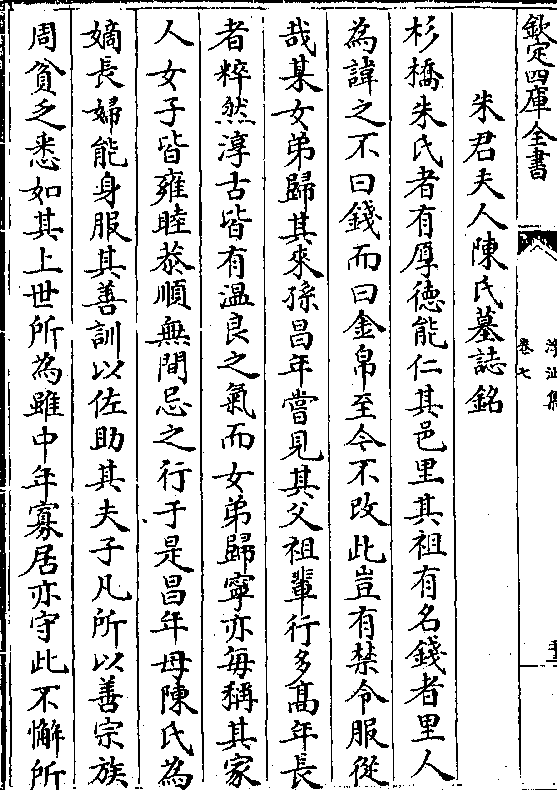 欽定四庫全書
卷七
朱君夫人陳氏墓誌銘
杉橋朱氏者有厚徳能仁其邑里其祖有名錢者里人
為諱之不曰錢而曰金帛至今不改此豈有禁令服從
哉某女弟歸其來孫昌年嘗見其父祖輩行多髙年長
者粹然淳古皆有溫良之氣而女弟歸寧亦每稱其家
人女子皆雍睦恭順無間忌之行于是昌年母陳氏為
嫡長婦能身服其善訓以佐助其夫子凡所以善宗族
周貧乏悉如其上世所為雖中年寡居亦守此不懈所